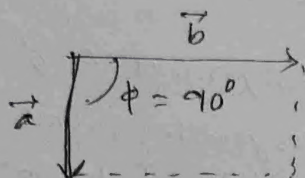 b
a
φ = 90°